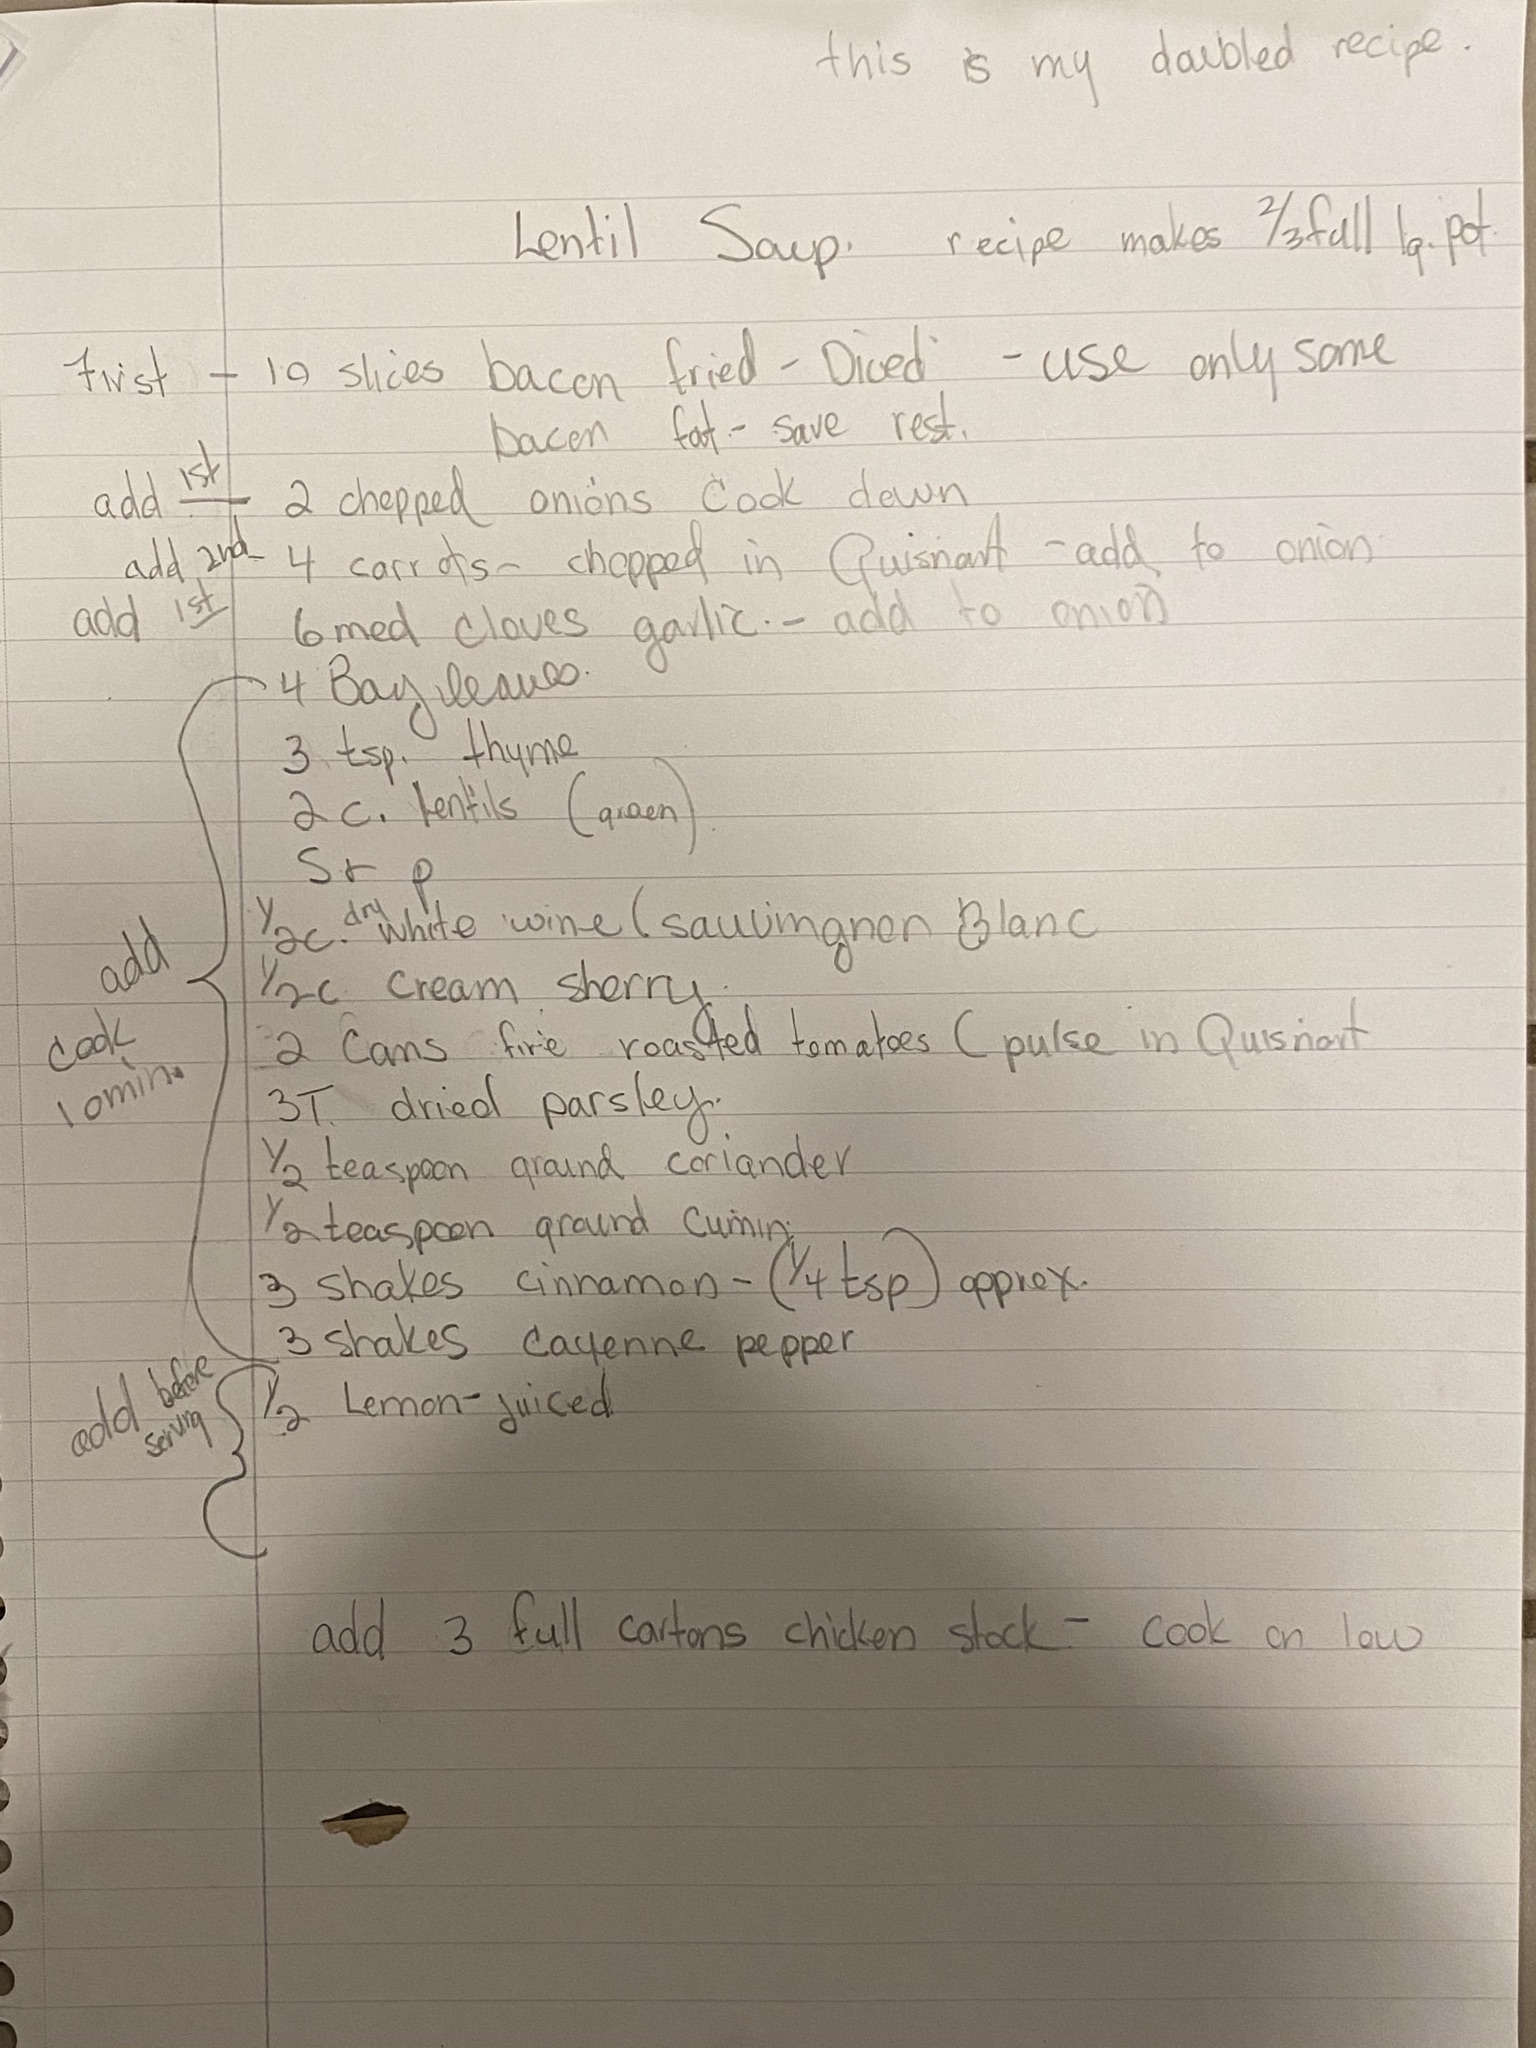 this is my doubled recipe.
Lentil Soup. recipe makes 2/3 full lg. pot.
First - 10 slices bacon fried - Diced - use only some
bacon fat - save rest.
add 1st - 2 chopped onions Cook down
add 2nd - 4 carrots - chopped in Quisnart - add to onion
add 1st 6 med cloves garlic. - add to onion
4 Bay leaves.
3 tsp. thyme
2 c. lentils (green)
S + p
1/2 c. dry white wine (sauvingnon Blanc
1/2 c cream sherry.
2 Cans fire roasted tomatoes (pulse in Quisnart
3T. dried parsley.
1/2 teaspoon ground coriander
1/2 teaspoon ground cumin
3 shakes cinnamon - (1/4 tsp) approx.
3 shakes cayenne pepper
add
cook
10 min.
1/2 Lemon - juiced
add before
serving
add 3 full cartons chicken stock - cook on low